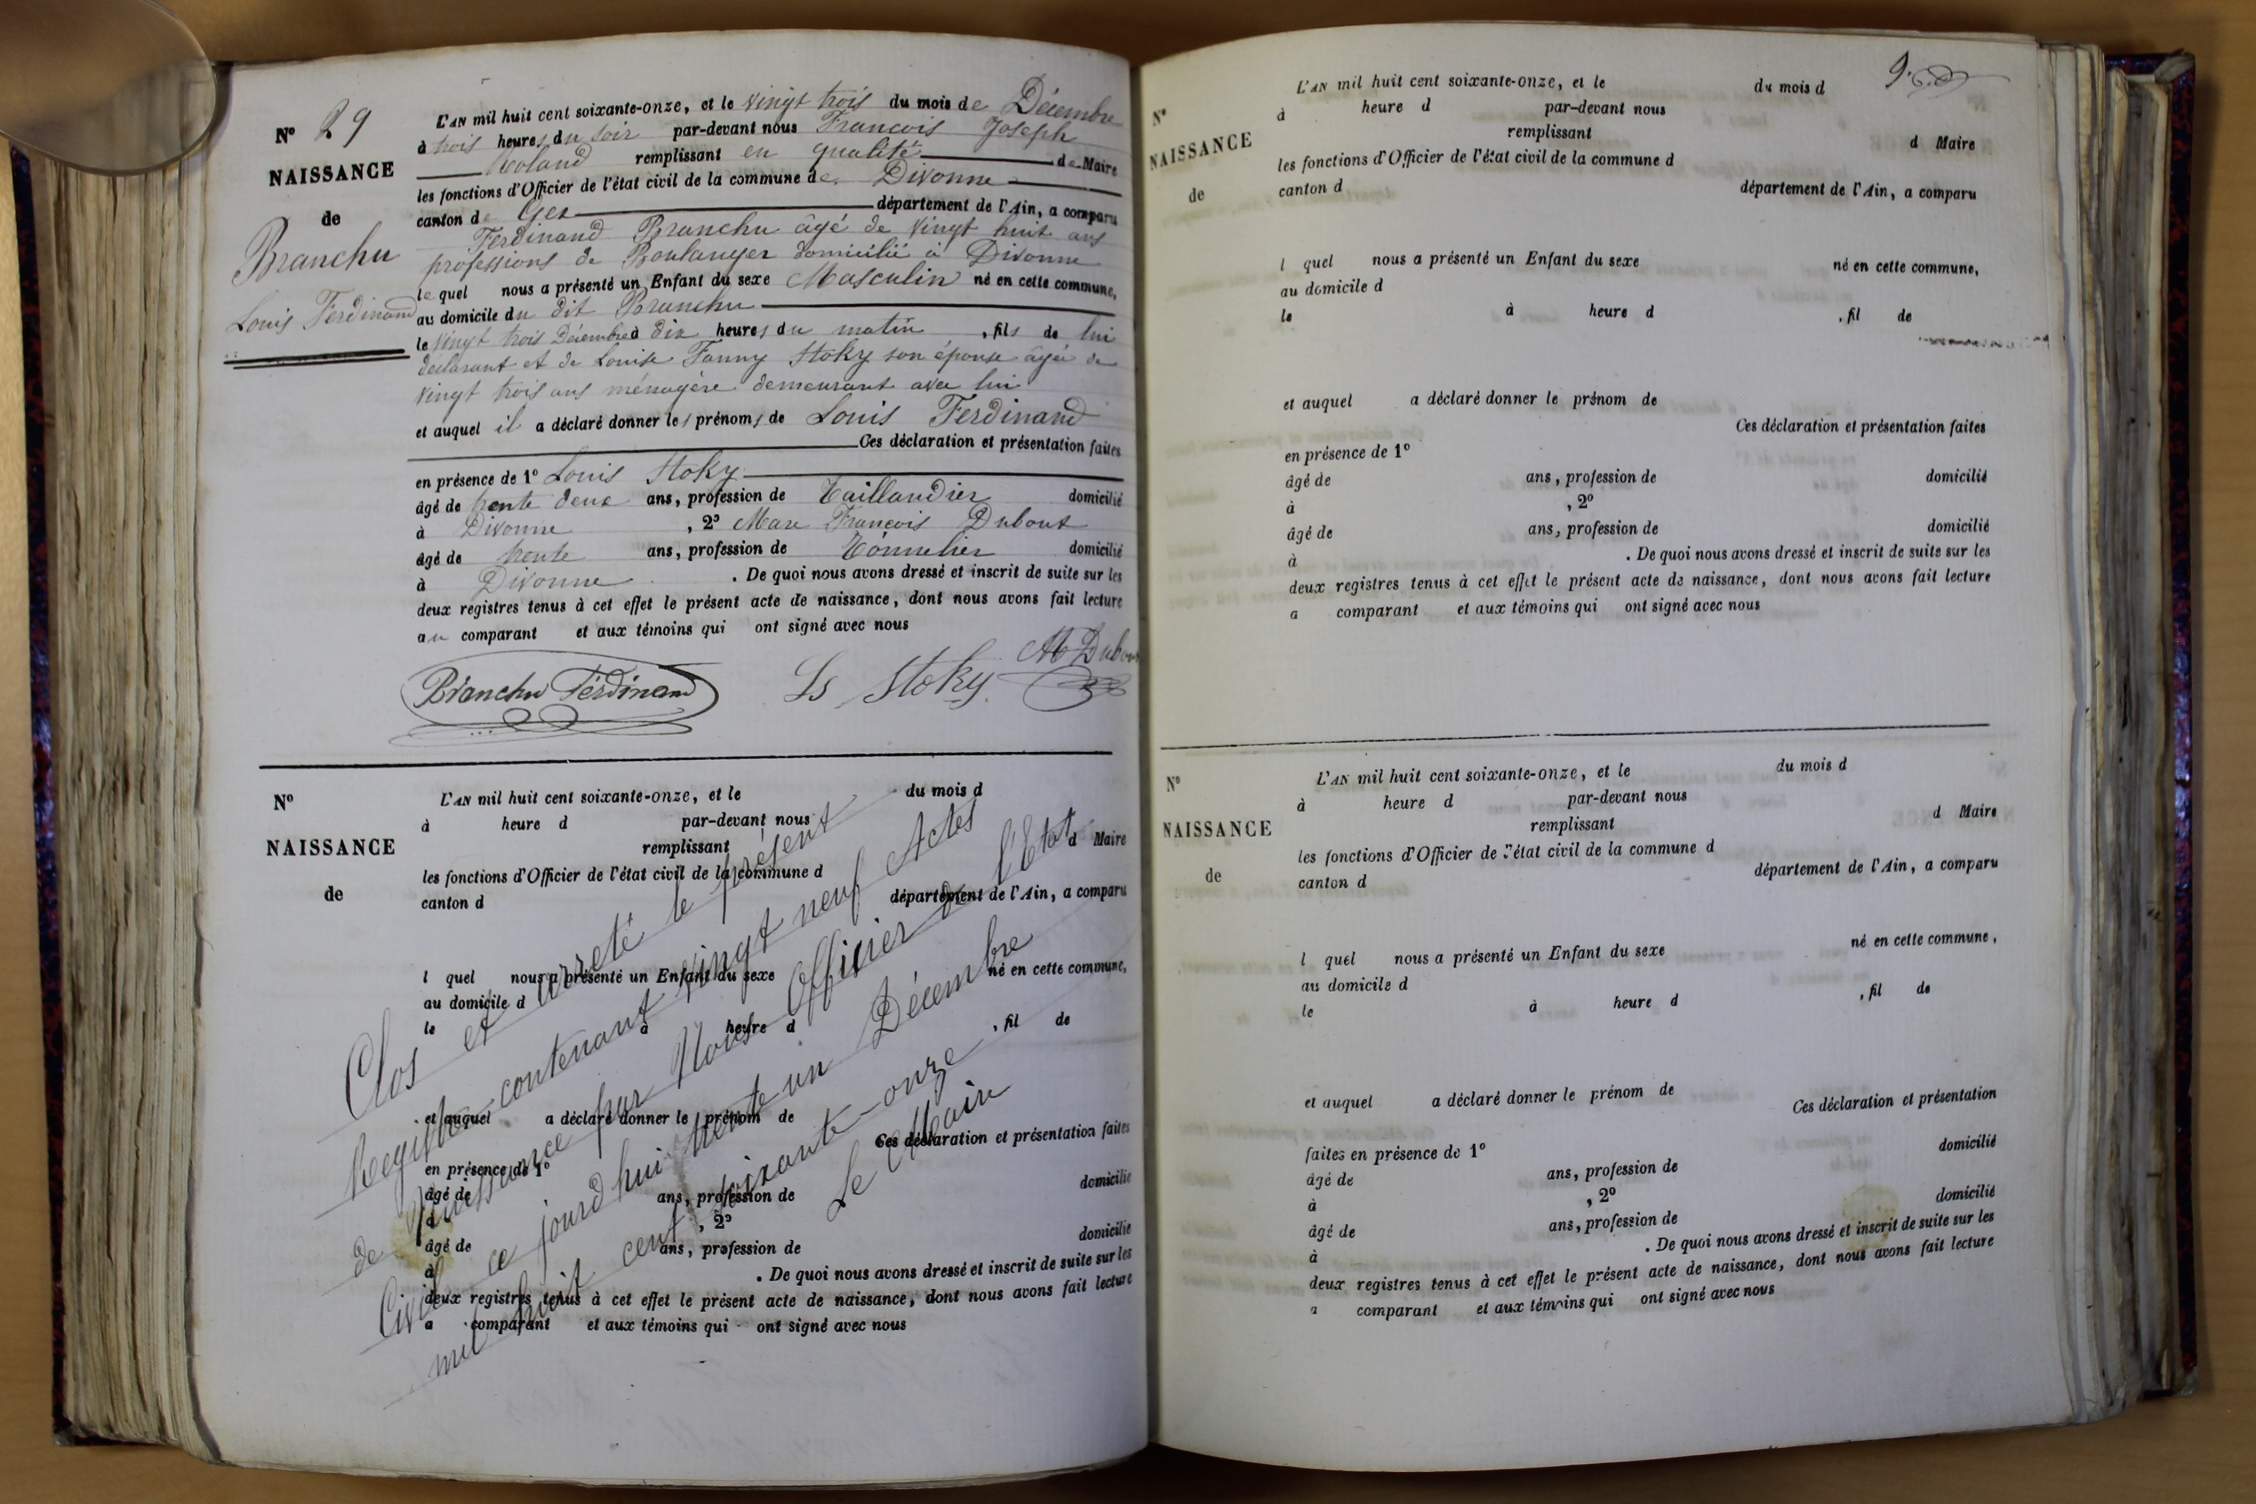 N° 29
NAISSANCE
de
Branchu
Louis Ferdinand
L'AN mil huit cent soixante-onze, et le vingt trois du mois de Décembre
à trois heures du soir par-devant nous Francois Joseph
Roland remplissant en qualité de Maire
les fonctions d'Officier de l'état civil de la commune de Divonne
canton de Gex département de l'Ain, a comparu
Ferdinand Branchu âgé de vingt huit ans
professions de Boulanger domicilié à Divonne
lequel nous a présenté un Enfant du sexe Masculin né en cette commune,
au domicile du dit Branchu
le vingt trois Décembre à dix heures du matin, fils de lui
déclarant et de Louise Fanny Stoky son épouse âgée de
vingt trois ans ménagère demeurant avec lui
et auquel il a déclaré donner les prénoms de Louis Ferdinand
Ces déclaration et présentation faites
en présence de 1° Louis Stoky
âgé de trente deux ans, profession de Taillandier domicilié
à Divonne, 2° Marc Francois Dubout
âgé de trente ans, profession de Tonnelier domicilié
à Divonne. De quoi nous avons dressé et inscrit de suite sur les
deux registres tenus à cet effet le présent acte de naissance, dont nous avons fait lecture
au comparant et aux témoins qui ont signé avec nous
Branchu Ferdinand Ls Stoky M Dubout
N°
NAISSANCE
de
L'AN mil huit cent soixante-onze, et le du mois d
à heure d par-devant nous
remplissant d Maire
les fonctions d'Officier de l'état civil de la commune d
canton d département de l'Ain, a comparu
l quel nous a présenté un Enfant du sexe né en cette commune,
au domicile d
le à heure d , fil de
et auquel a déclaré donner le prénom de
Ces déclaration et présentation faites
en présence de 1°
âgé de ans, profession de domicilié
à , 2°
âgé de ans, profession de domicilié
à . De quoi nous avons dressé et inscrit de suite sur les
deux registres tenus à cet effet le présent acte de naissance, dont nous avons fait lecture
a comparant et aux témoins qui ont signé avec nous
Clos et arreté le présent
Registre contenant vingt neuf Actes
de Naissance par Nous Officier de l'Etat
Civil ce jourd'hui trente un Décembre
mil huit cent soixante-onze
Le Maire
9.
N°
NAISSANCE
de
L'AN mil huit cent soixante-onze, et le du mois d
à heure d par-devant nous
remplissant d Maire
les fonctions d'Officier de l'état civil de la commune d
canton d département de l'Ain, a comparu
l quel nous a présenté un Enfant du sexe né en cette commune,
au domicile d
le à heure d , fil de
et auquel a déclaré donner le prénom de
Ces déclaration et présentation faites
en présence de 1°
âgé de ans, profession de domicilié
à , 2°
âgé de ans, profession de domicilié
à . De quoi nous avons dressé et inscrit de suite sur les
deux registres tenus à cet effet le présent acte de naissance, dont nous avons fait lecture
a comparant et aux témoins qui ont signé avec nous
N°
NAISSANCE
de
L'AN mil huit cent soixante-onze, et le du mois d
à heure d par-devant nous
remplissant d Maire
les fonctions d'Officier de l'état civil de la commune d
canton d département de l'Ain, a comparu
l quel nous a présenté un Enfant du sexe né en cette commune,
au domicile d
le à heure d , fil de
et auquel a déclaré donner le prénom de
Ces déclaration et présentation
faites en présence de 1° domicilié
âgé de ans, profession de
à , 2° domicilié
âgé de ans, profession de
à . De quoi nous avons dressé et inscrit de suite sur les
deux registres tenus à cet effet le présent acte de naissance, dont nous avons fait lecture
a comparant et aux témoins qui ont signé avec nous